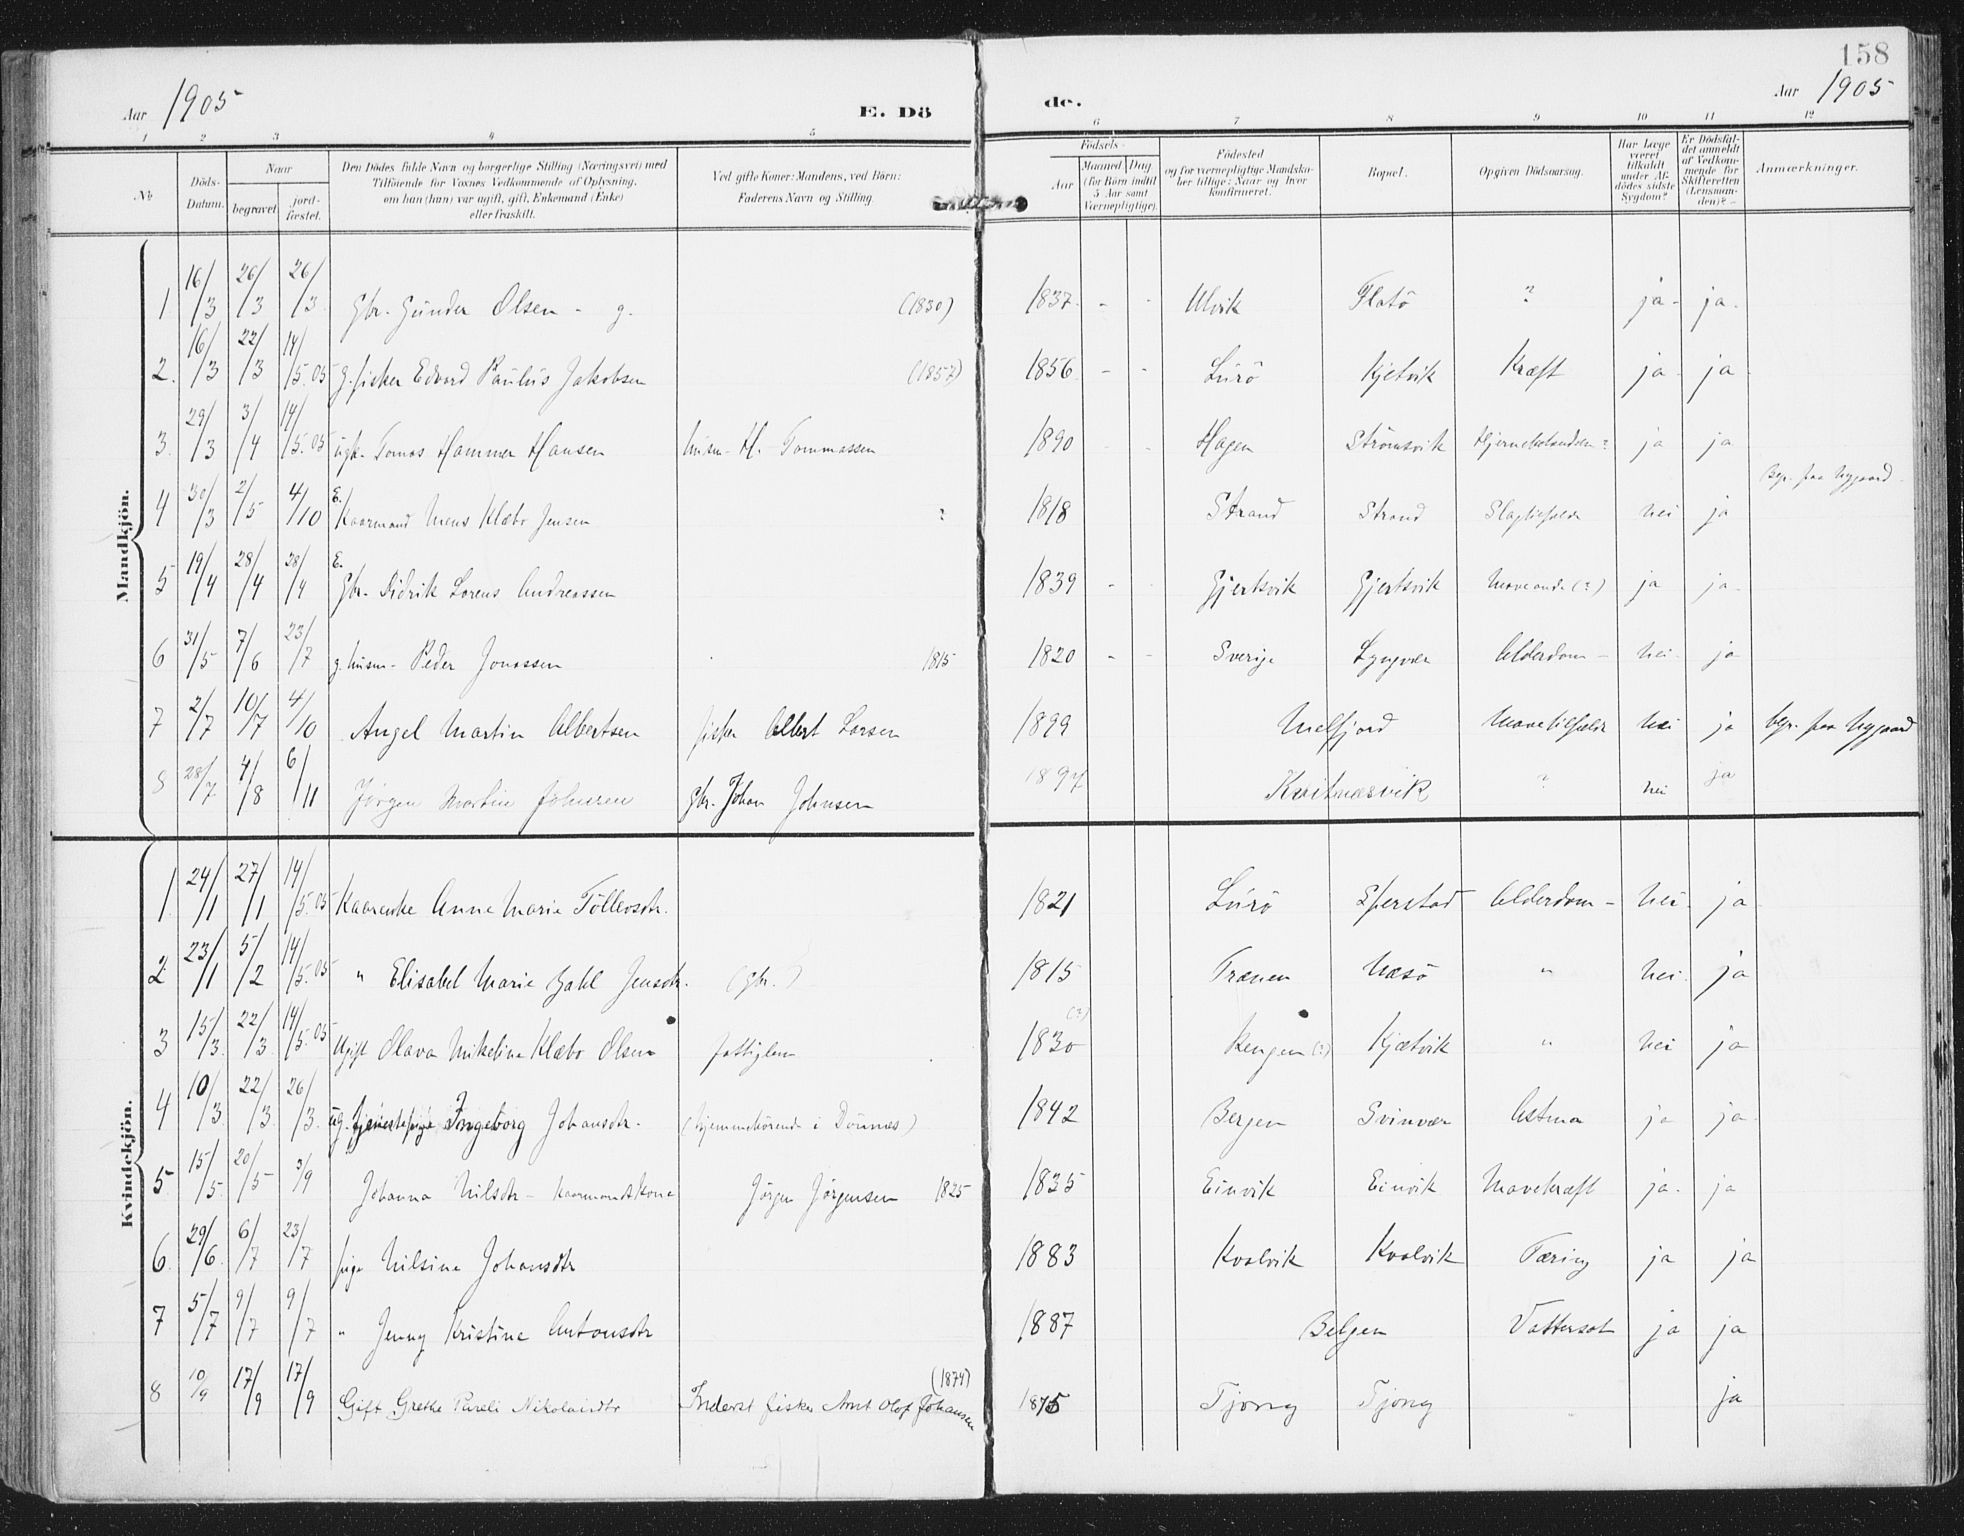 158
Aar 1905
E. Dö
de.
Aar 1905
1 2 3 4 5 6 7 8 9 10 11 12
No. Döds-Datum. Naar begravet. jord-fæstet. Den Dödes fulde Navn og borgerlige Stilling (Næringsvei) med Tilföiende for Voxnes Vedkommende af Oplysning, om han (hun) var ugift, gift, Enkemand (Enke) eller fraskilt. Ved gifte Koner: Mandens, ved Börn: Faderens Navn og Stilling. Födsels- Aar Maaned Dag (for Börn indtil 5 Aar samt Værnepligtige). Födested og for værnepligtige Mandskaber tillige: Naar og hvor konfirmeret. Bopæl. Opgiven Dödsaarsag. Har Læge været tilkaldt under Afdödes sidste Sygdom? Er Dödsfaldet anmeldt af Vedkommende for Skifteretten (Lensmanden)? Anmærkninger.
Mandkjön.
1 16/3 26/3 26/3 Gbr. Gunder Olsen - g. (1830) 1837 - - Ulvik Flatö ? ja - ja -
2. 16/3 22/3 14/5.05 g. fisker Edvard Paulus Jakobsen (1857) 1856 - - Lurö Kjetvik Kræft ja - ja -
3. 29/3 3/4 14/5.05 Tomas Hammer Hansen husm. H. Tommassen 1890 Hagen Strömsvik ? ja ja
4 30/3 2/5 4/10 E. Kaarmand Mens Klæbo Jensen ? 1818 Strand Strand nei ja Begr. paa Nygaard
5 19/4 28/4 28/4 E. Gbr. Didrik Lorens Andreassen 1839 - - Gjertsvik Gjertsvik (?) ja ja -
6 31/5 7/6 23/7 g. husm. Peder Jonassen 1815 1820 - - Sverige Lyngvær Alderdom - nei - ja
7 2/7 10/7 4/10 Angel Martin Albertsen fisker Albert Larsen 1899 Melfjord nei ja begr. paa Nygaard
8 28/7 4/8 6/11 Jörgen Martin Johnsen Gbr. Johan Johnsen 1897 ? nei ja
Kvindekjön.
1. 24/1 27/1 14/5.05 Kaarenke Anne Marie Töllevsdtr. 1821 Lurö Sperstad Alderdom - nei - ja -
2. 23/1 5/2 14/5.05 " Elisabet Marie Dahl Jensdtr. (Gbr. ) 1815 Trænen Næsö " nei - ja
3 15/3 22/3 14/5.05 Ugift Olava Mikeline Klæbo Olsen fattiglem 1830 (?) Rengen (?) Kjætvik " nei ja
4 10/3 22/3 26/3 ug. tjenestepige Ingeborg Johansdtr. (hjemmehörende i Dönnæs) 1842 Bergen Svinvær Astma ja ja
5 15/5 20/5 3/9 Johanna Nilsdtr - kaarmandskone Jörgen Jörgensen 1825 1835 Einvik Einvik Mavekræft ja - ja
6. 29/6 6/7 23/7 pige Nilsine Johansdtr 1883 Kvalvik Kvalvik Tæring ja ja
7 5/7 9/7 9/7 " Jenny Kristine Antonsdtr 1887 Belgen Vattersot ja ja
8 10/9 17/9 17/9 Gift Grethe Pareli Nikolaisdtr Inderst fisker Arnt Olof Johansen (1874) 1875 Tjong Tjong ja